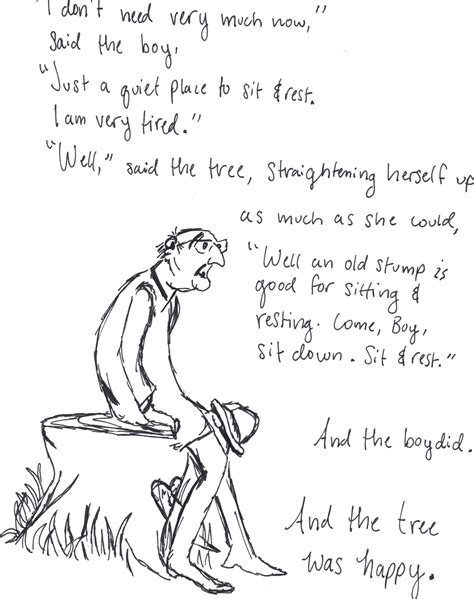 "I don't need very much now,"
Said the boy,
"Just a quiet place to sit & rest.
I am very tired."
"Well," said the tree, straightening herself up
as much as she could,
"Well an old stump is
good for sitting &
resting. Come, Boy,
sit down. Sit & rest."
And the boy did.
And the tree
was happy.